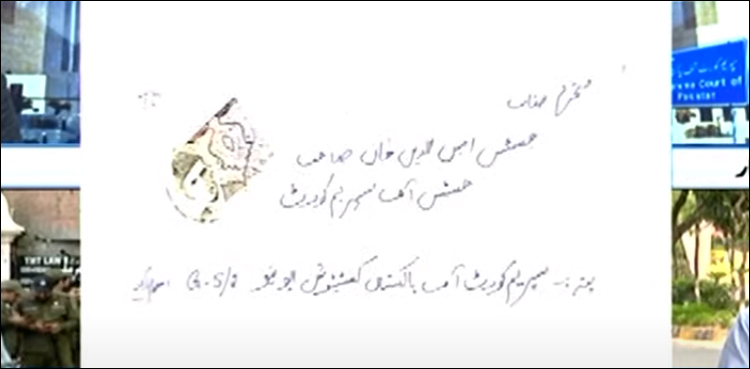 محترم جناب
جسٹس امین الدین خان صاحب
جسٹس آف سپریم کورٹ
پتہ :- سپریم کورٹ آف پاکستان کنسٹیٹیوشن ایونیو G-5/2 اسلام آباد
سپریم کورٹ آف
Supreme Court of
Pakistan
THE LAW